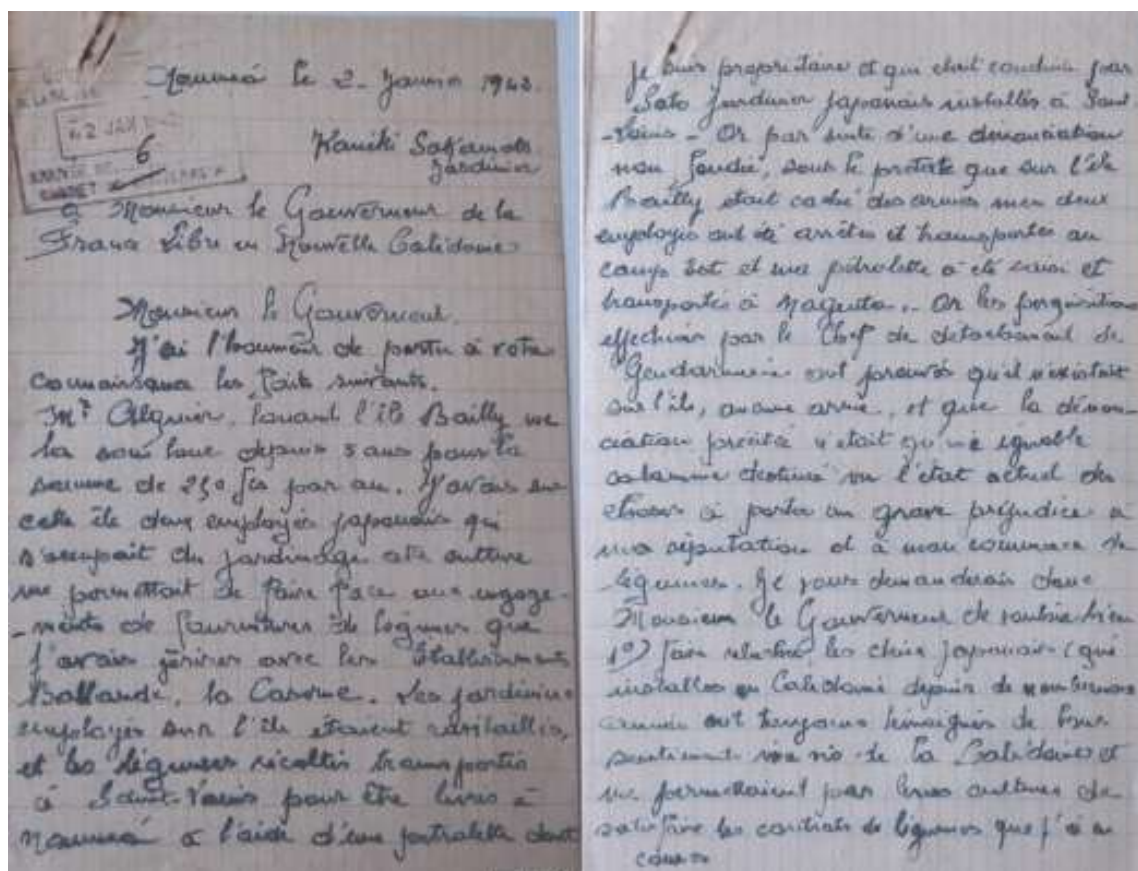 Nouméa le 2 Janvier 1942.
2 JAN
6
CABINET
Kaniki Sakamoto
Jardinier
à Monsieur le Gouverneur de la
France Libre en Nouvelle Calédonie
Monsieur le Gouverneur.
J'ai l'honneur de porter à votre
connaissance les faits suivants.
Mr Alquier, louant l'île Bailly me
la sous loue depuis 5 ans pour la
somme de 250 frs par an. J'avais sur
cette île deux employés japonais qui
s'occupait du jardinage
me permettait de faire face aux engage-
-ments de fournitures de légumes que
j'avais avec les Établissements
Ballande, la Caserne. Les jardiniers
employés sur l'île étaient ravitaillés,
et les légumes récoltés transportés
à Saint-Louis pour être livrés à
Nouméa à l'aide d'une pétrolette dont
je suis propriétaire et qui était conduite par
Sato jardinier japonais installé à Saint
-Louis - Or par suite d'une dénonciation
non fondée, sous le prétexte que sur l'île
Bailly était caché des armes mes deux
employés ont été arrêtés et transportés au
camp Est et ma pétrolette a été saisi et
transportée à Magenta.. Or les perquisitions
effectuées par le Chef de detachement de
Gendarmerie ont prouvés qu'il n'existait
sur l'île, aucune arme, et que la dénon-
ciation précitée n'était qu'une ignoble
calomnie destinée vu l'état actuel des
choses à porter un grave préjudice à
ma réputation et à mon commerce de
légumes. Je vous demanderais donc
Monsieur le Gouverneur de vouloir bien
1°) faire relacher les deux Japonais (qui
installés en Calédonie depuis de nombreuses
années ont toujours témoignés de leurs
sentiments de la Calédonie) et
me permettaient par leurs cultures de
satisfaire les contrats de légumes que j'ai en
cours